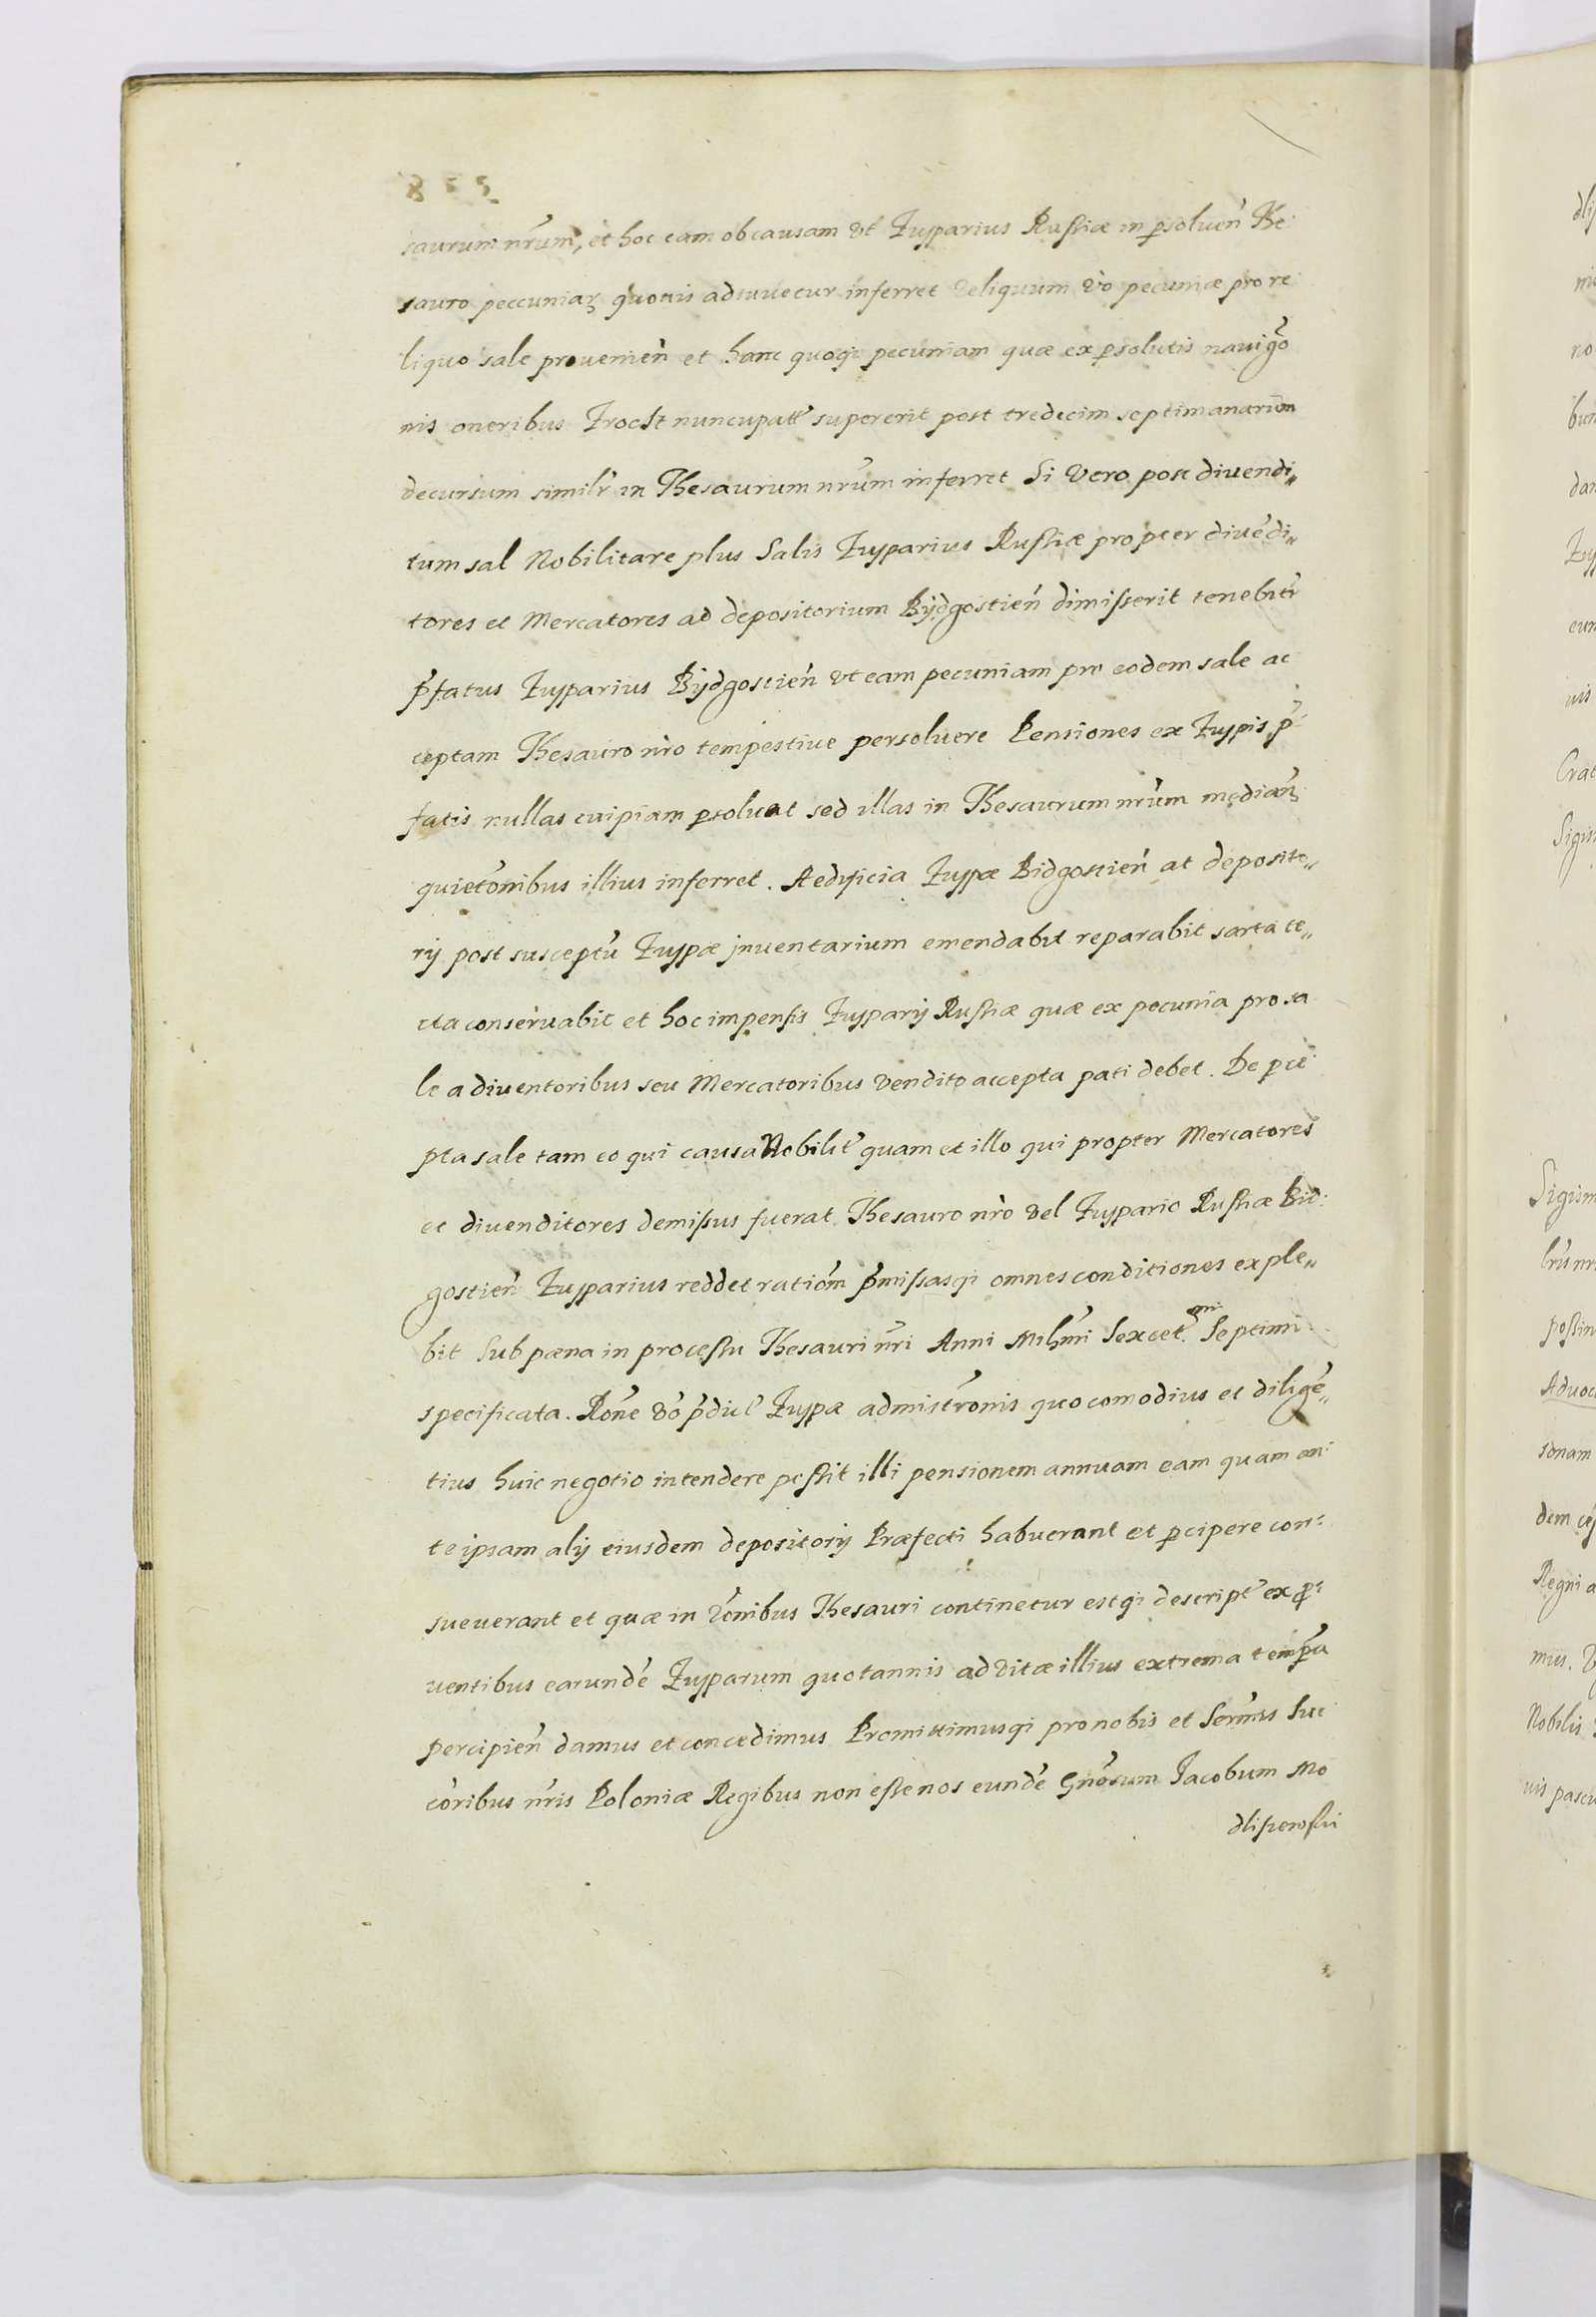 855
saurum nr̃um, et hoc eam ob causam vt Zupparius Russiæ in psoluen̄ The
sauro peccuniar̨ quotis adiuvetur inferret Reliquum vo pecuniæ pro re
liquo sale provenien̄ et hanc quoqꝫ pecuniam quæ ex psolutis nauigo
nis oneribus nuncupatt supererit post tredecim septimanarum
decursum similr̄ in Thesaurum nr̄um inferret Si vero post divendi„
tum sal Nobilitare plus Salis Zupparius Russiæ propter divēdi„
tores et Mercatores ad depositorium Bÿdgostien̄ dimisserit tenebitr̄
p̄fatus Zupparius Bÿdgostien̄ vt eam pecuniam pro eodem sale ac
ceptam Thesauro nr̄o tempestive persoluere Pensiones ex Zuppis p̄
fatis nullas cuipiam psoluat sed illas in Thesaurum nr̄um median̄
quietōnibus illius inferret. Aedificia Zuppæ Bidgostien̄ at deposito„
rij post susceptū Zuppæ jnventarium emendabit reparabit sarta te„
cta conservabit et hoc impensis Zupparij Russiæ quæ ex pecunia pro sa
le a diventoribus seu Mercatoribus vendito accepta pati debet. De pce
pta sale tam eo qui causa Nobilit̄ quam et illo qui propter Mercatores
et divenditores demissus fuerat Thesauro nr̄o vel Zuppario Russiæ Bid:
gostien̄ Zupparius reddet ratiōm p̄missasqꝫ omnes conditiones exple„
bit Sub pæna in processu Thesauri nr̄i Anni Millm̄i Sexcet̄mi Septimi
specificata. Rōne vo p̄dict̄ Zuppæ admistrōnis quo comodius et diligē„
tius huic negotio intendere possit illi pensionem annuam eam quam an
te ipsam alij eiusdem depositorij Præfecti habuerant et pcipere con:
sueverant et quæ in rōnibus Thesauri continetur estqꝫ descript̄ ex pro
uentibus earundē Zupparum quotannis ad vitæ illius extrema tempa
percipien̄ damus et concedimus Promittimusqꝫ pro nobis et Serm̄is Suc
cōribus nr̄is Poloniæ Regibus non esse nos eundē Gnōsum Jacobum Mo
dliszewski